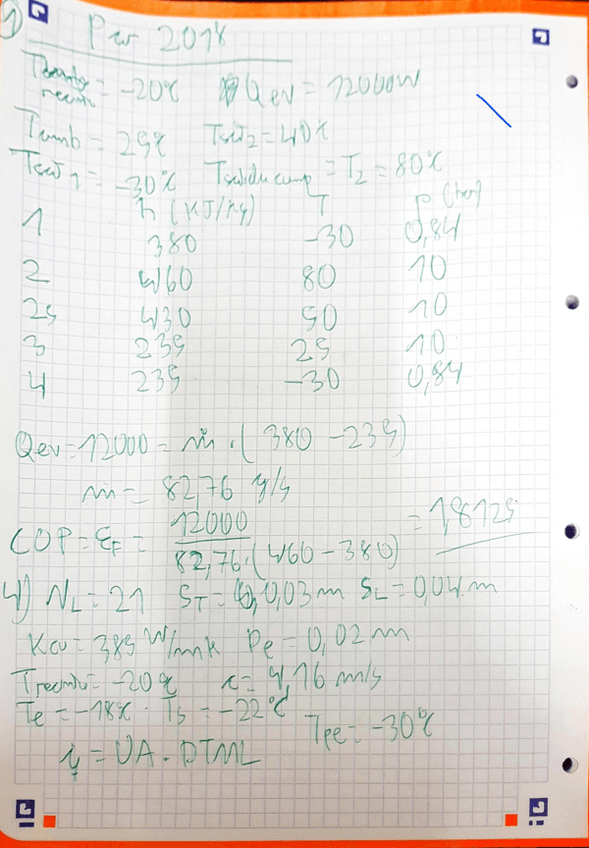 1) Pav 2018
= -20°C Qev = 12000W
Tamb = 25°C Tsat2 = 40°C
Tsat1 = -30°C = T2 = 80°C
h (KJ/Kg) T P (bar)
1 380 -30 0,84
2 460 80 10
2s 430 50 10
3 235 25 10
4 235 -30 0,84
Qev = 12000 = ṁ · ( 380 - 235)
ṁ = 82,76 g/s
COP = εF = 12000 / 82,76·(460 - 380) = 1,8125
4) NL = 21 ST = 0,03 m SL = 0,04 m
Kcu = 385 W/mK De = 0,02 m
Trecinto = -20°C c = 4,16 m/s
Te = -18°C · Ts = -22°C
Tpe = -30°C
q = UA · DTML